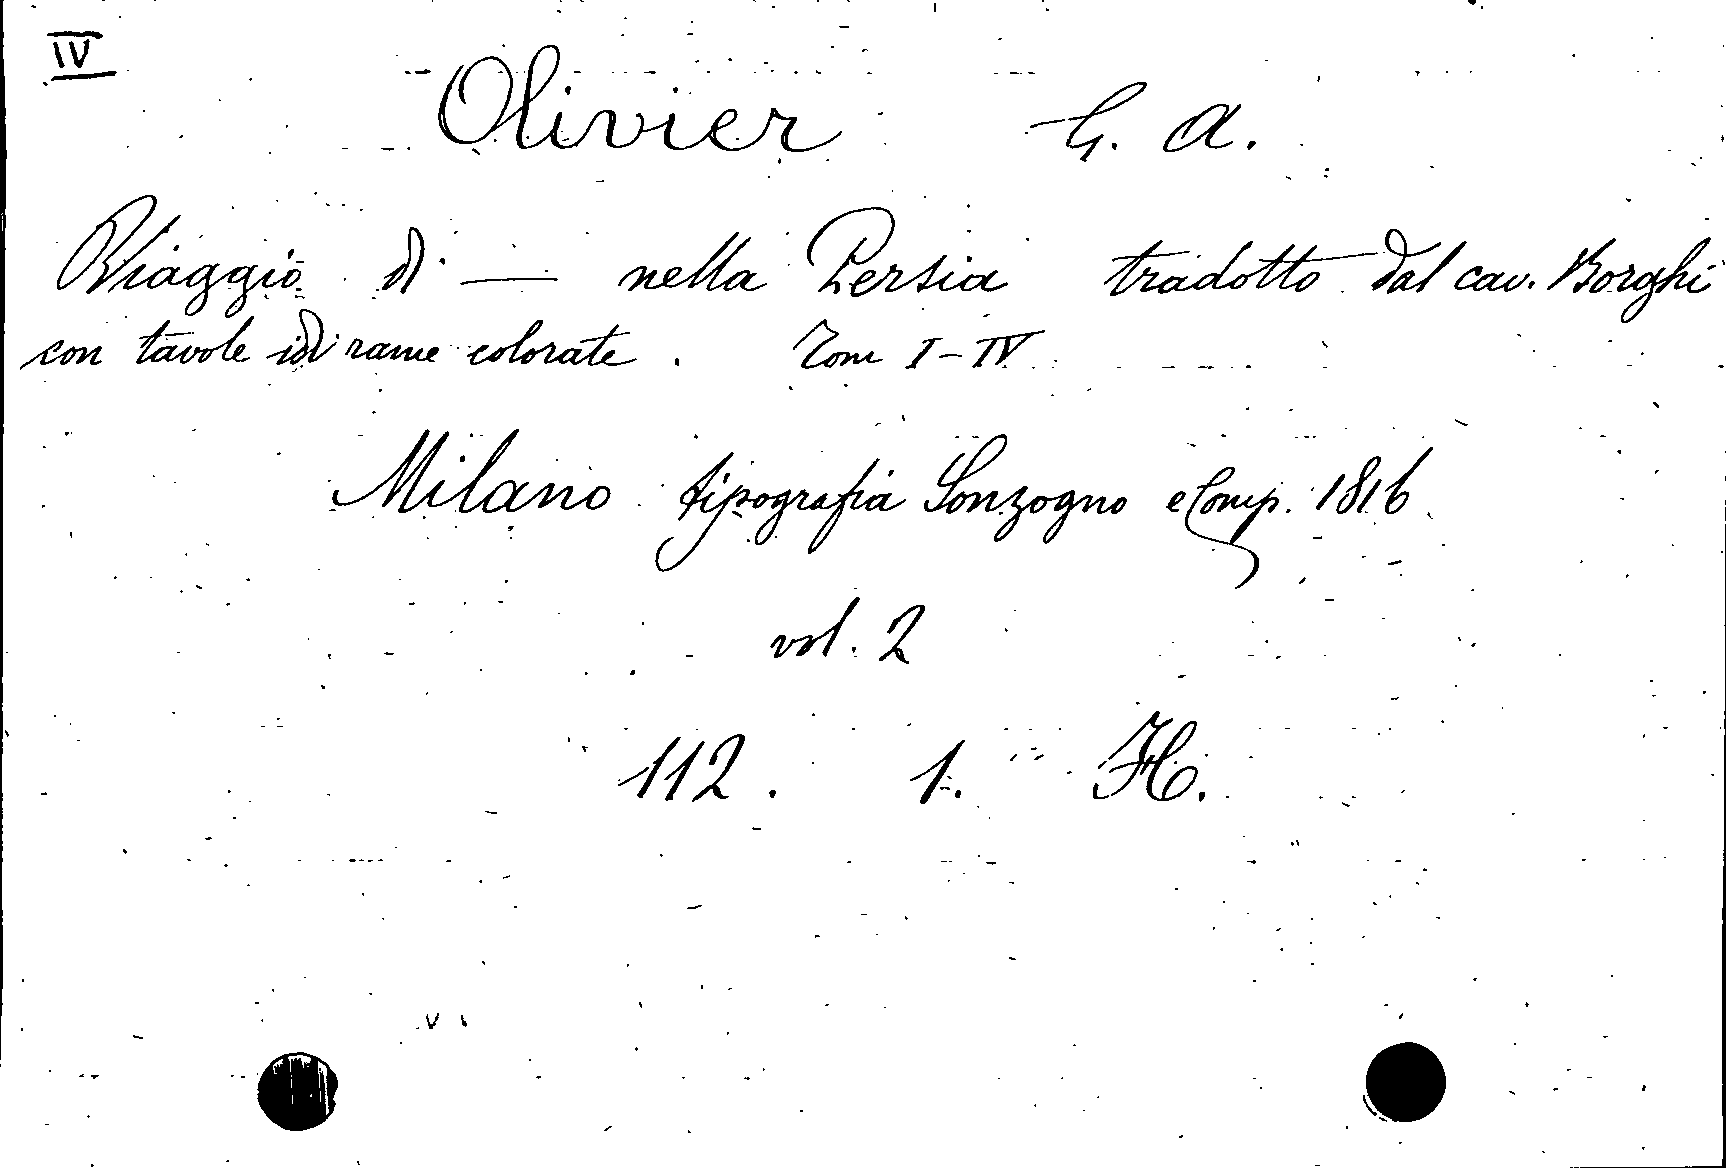 IV
Olivier G. A.
Viaggio di — nella Persia tradotto dal cav. Borghi
con tavole in rame colorate. Tom I-IV
Milano tipografia Sonzogno e Comp. 1816
vol. 2
112. 1. H.